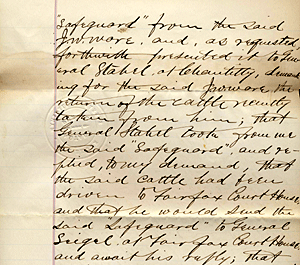 "Safeguard" from the said
J.W. Ware, and, as requested
forthwith presented it to Gen-
eral Stahel, at Chantilly, demand
ing for the said J.W. Ware the
return of the cattle recently
taken from him; that
General Stahel took from me
the said "Safeguard", and re-
plied, to my demand, that
the said cattle had been
driven to Fairfax Court House,
and that he would send the
said "Safeguard" to General
Seigel, at Fairfax Court House,
and await his reply; that